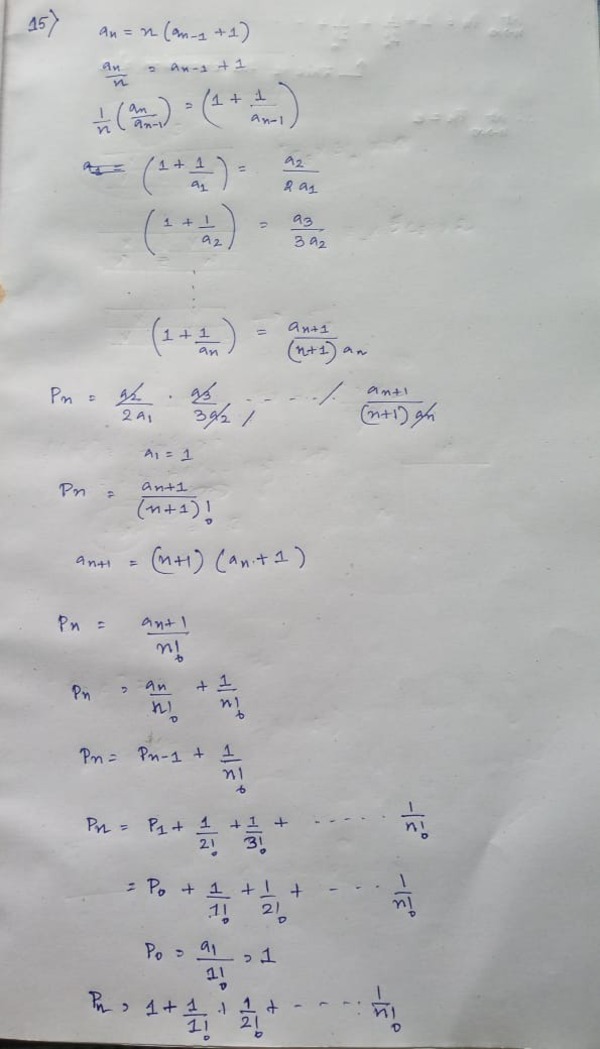 15)
an = n (an-1 + 1)
an/n = an-1 + 1
1/n (an/an-1) = (1 + 1/an-1)
(1 + 1/a1) = a2/2a1
(1 + 1/a2) = a3/3a2
⋮
(1 + 1/an) = an+1/(n+1) an
Pn = a2/2a1 · a3/3a2, ---- / · an+1/(n+1) an
a1 = 1
Pn = an+1/(n+1)!
an+1 = (n+1) (an + 1)
Pn = an+1/n!
Pn = an/n! + 1/n!
Pn = Pn-1 + 1/n!
Pn = P1 + 1/2! + 1/3! + ----- 1/n!
= P0 + 1/1! + 1/2! + ---- 1/n!
P0 = a1/1! = 1
Pn = 1 + 1/1! + 1/2! + ----- 1/n!